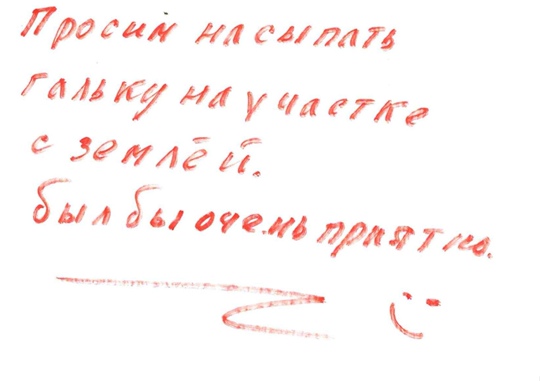 Просим насыпать
гальку на участке
с землёй.
был бы очень приятно.